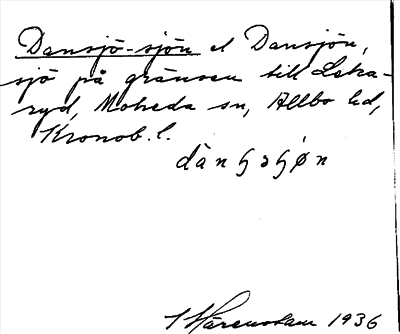 Dansjö-sjön el Dansjön,
sjö på gränsen till Lekaryd,
Moheda sn, Allbo hd,
Kronob. l.
1936